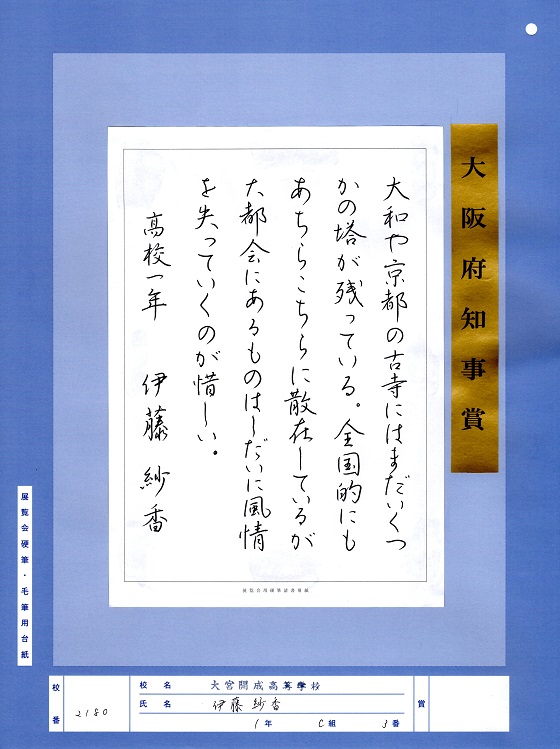 大阪府知事賞
大和や京都の古寺にはまだいくつ
かの塔が残っている。全国的にも
あちらこちらに散在しているが
大都会にあるものはしだいに風情
を失っていくのが惜しい。
高校一年 伊藤紗香
展覧会用硬筆清書用紙
展覧会硬筆・毛筆用台紙
校番 2180
校名 大宮開成高等学校
氏名 伊藤紗香
1年 C組 3番
賞